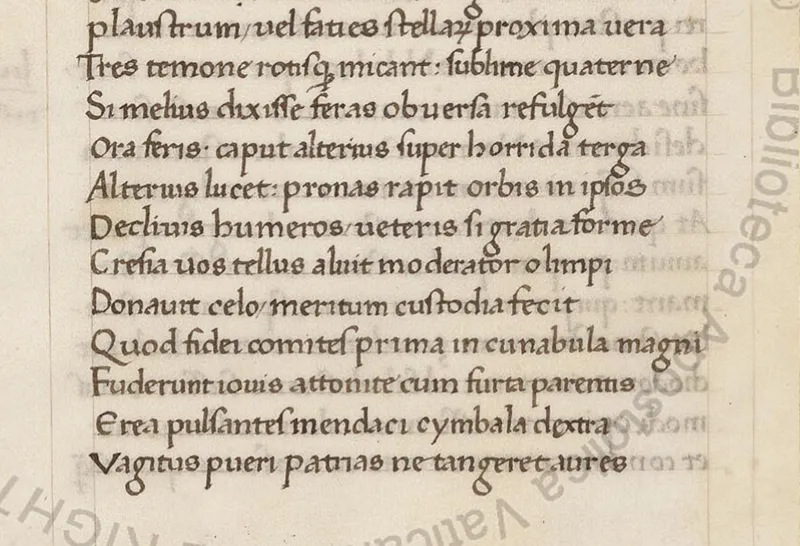 plaustrum/vel faties stellaꝝ proxima uera
Tres temone rotisqꝫ micant: sublime quaterne
Si melius dixisse feras obuersa refulgēt
Ora feris· caput alterius super horrida terga
Alterius lucet: pronas rapit orbis in ipsos
Decliuis humeros/ueteris si gratia forme
Cresia uos tellus aluit moderator olimpi
Donauit celo/meritum custodia fecit
Quod fidei comites prima in cunabula magni
Fuderunt iouis attonite cum furta parentis
Erea pulsantes mendaci cymbala dextra
Vagitus pueri patrias ne tangeret aures
Biblioteca Apostolica Vaticana